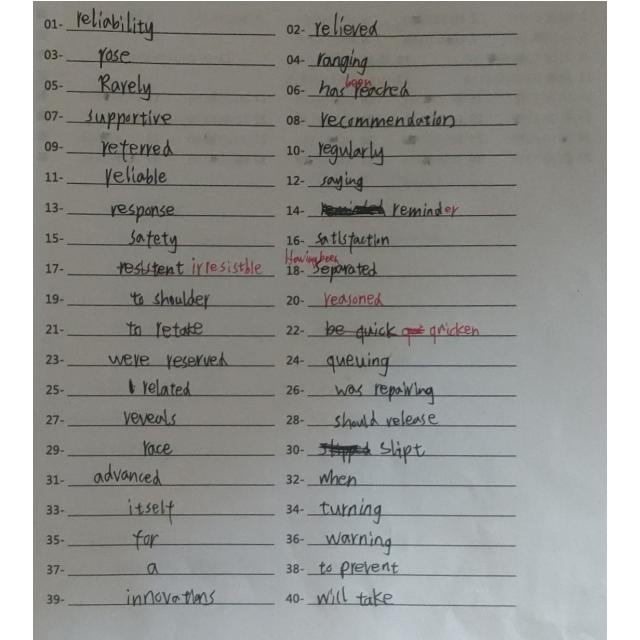 01- reliability 02- relieved
03- rose 04- ranging
05- Rarely 06- has been reached
07- supportive 08- recommendation
09- referred 10- regularly
11- reliable 12- saying
13- response 14- reminder
15- safety 16- satisfaction
17- resistent irresistble 18- Having been separated
19- to shoulder 20- reasoned
21- to retake 22- be quick quicken
23- were reserved 24- queuing
25- related 26- was repairing
27- reveals 28- should release
29- race 30- slipt
31- advanced 32- when
33- itself 34- turning
35- for 36- warning
37- a 38- to prevent
39- innovations 40- will take